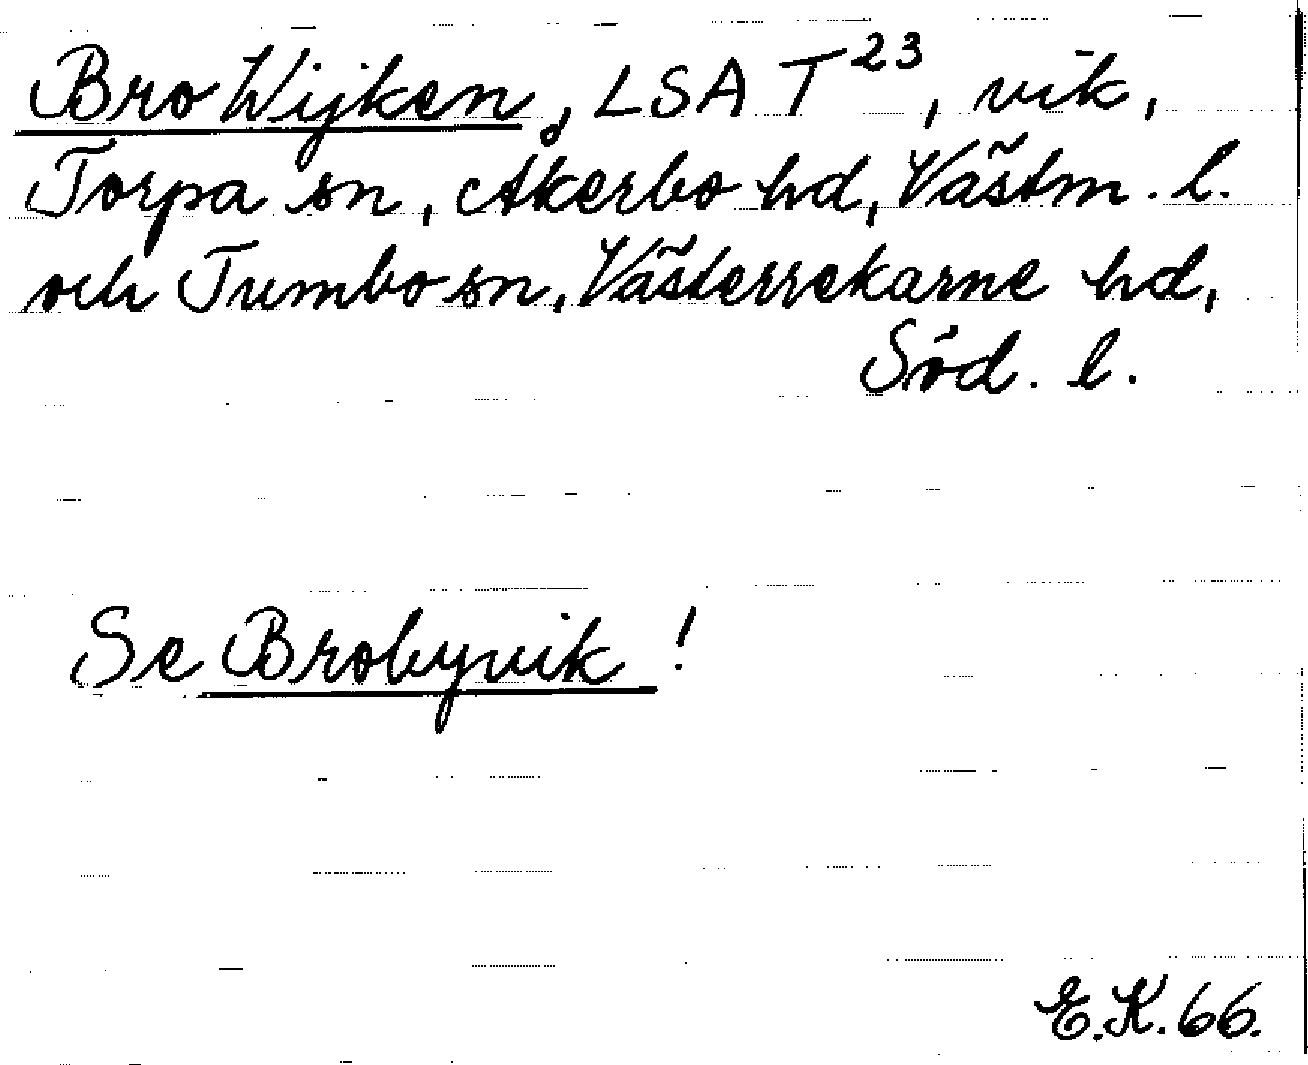 Bro Wijken, LSA T²³, vik,
Torpa sn, Åkerbo hd, Västm. l.
och Tumbo sn, Västerrekarne hd,
Söd. l.
Se Brobyvik!
E.K. 66.